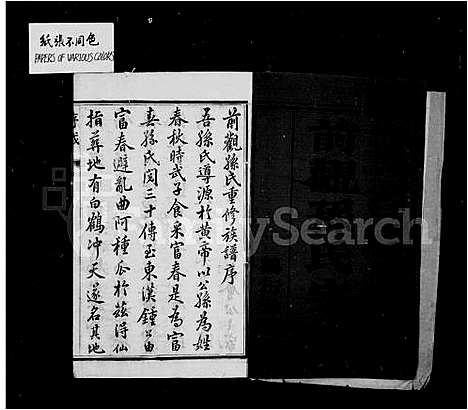 紙張不同色
PAPERS OF VARIOUS COLORS
前觀孫氏重修族譜序
吾孫氏導源於黃帝以公孫為姓
春秋時武子食采富春是為富
春孫氏閱三十傳至東漢鍾公由
富春避亂曲阿種瓜於茲得仙
指葬地有白鶴冲天遂名其地
MySearch